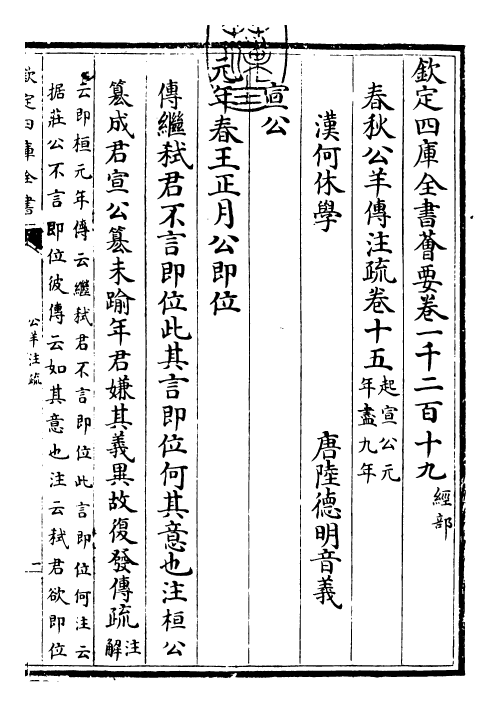 欽定四庫全書薈要卷一千二百十九 經部
春秋公羊傳注疏卷十五 起宣公元年盡九年
漢何休學 唐陸德明音義
宣公
元年春王正月公即位
傳繼弒君不言即位此其言即位何其意也注桓公
篡成君宣公篡未踰年君嫌其義異故復發傳疏 注解
云即桓元年傳云繼弒君不言即位此言即位何注云
据莊公不言即位彼傳云如其意也注云弒君欲即位
欽定四庫全書
公羊注疏